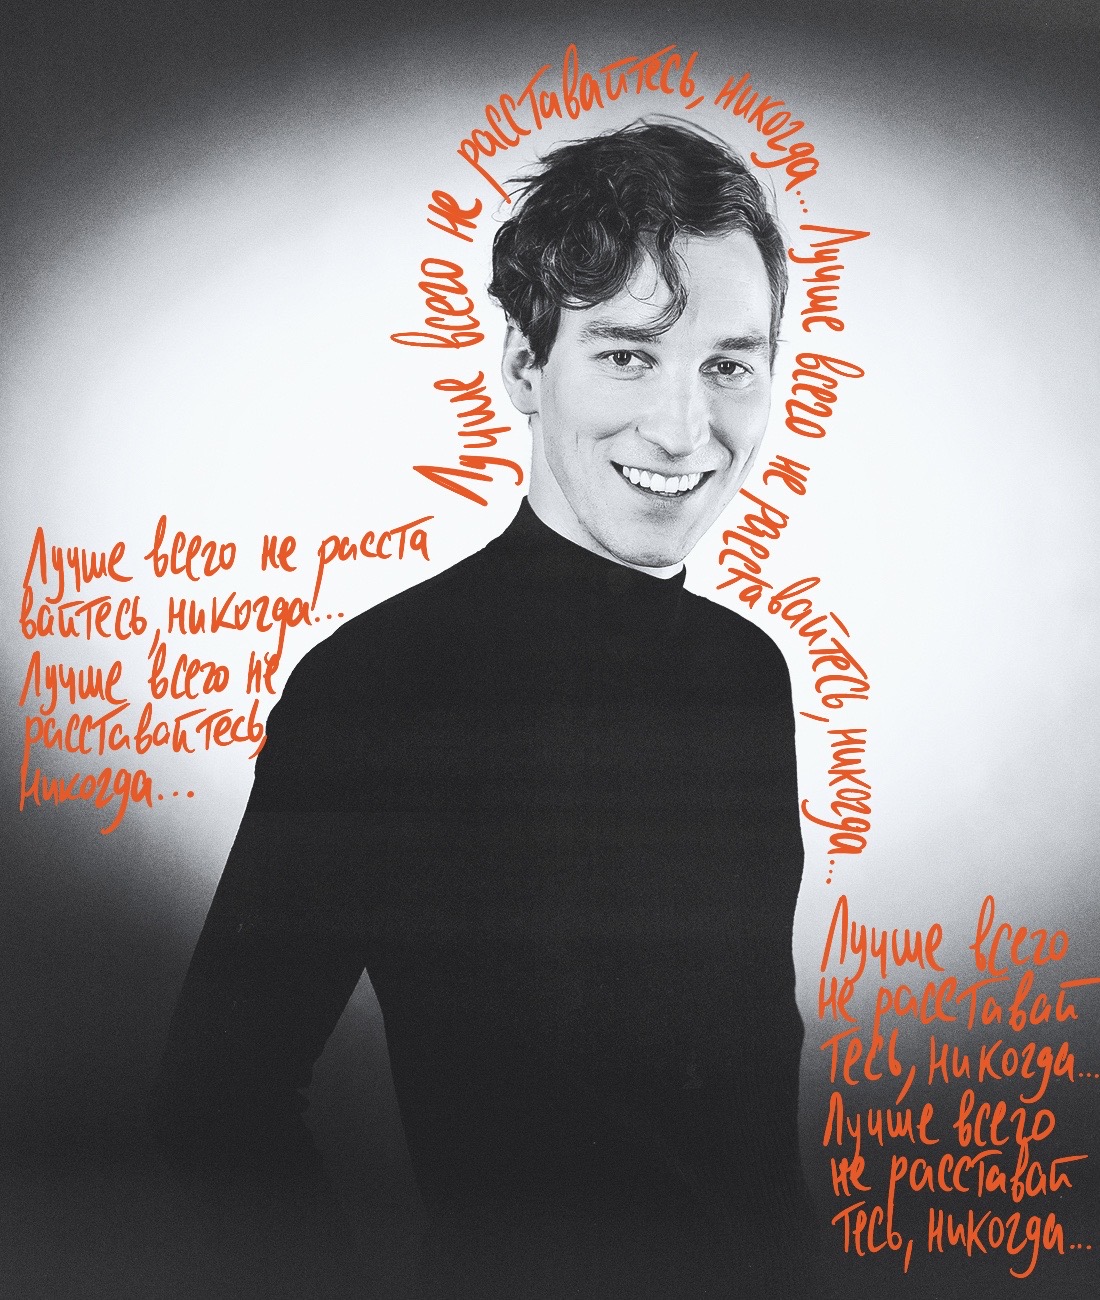 Лучше всего не расставайтесь, никогда... Лучше всего не расставайтесь, никогда...
Лучше всего не расста
вайтесь, никогда!...
Лучше всего не
расставайтесь,
никогда...
Лучше всего
не расставай
тесь, никогда...
Лучше всего
не расставай
тесь, никогда...